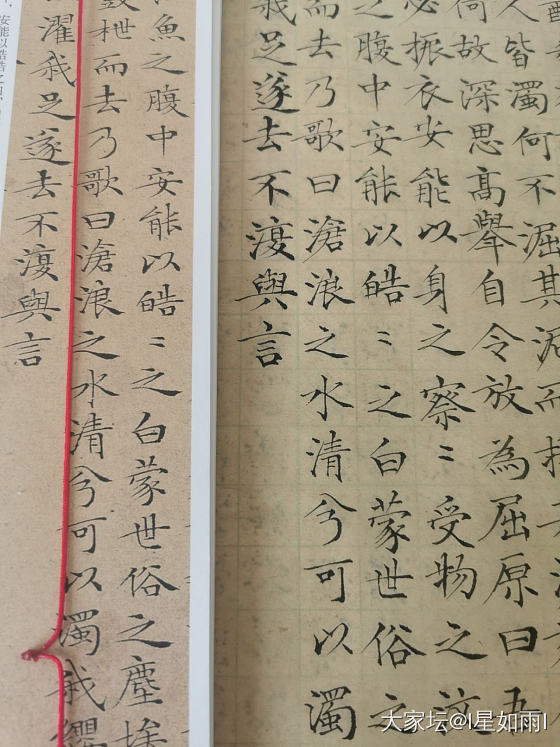 人皆濁何不淈其泥而
何故深思高舉自令放為屈原曰吾
必振衣安能以身之察〻受物之汶
之腹中安能以皓〻之白蒙世俗之
而去乃歌曰滄浪之水清兮可以濁
我足遂去不復與言
魚之腹中安能以皓〻之白蒙世俗之塵埃
鼓枻而去乃歌曰滄浪之水清兮可以濁我纓
濯我足遂去不復與言
安能以皓皓之白
大家坛@I星如雨I